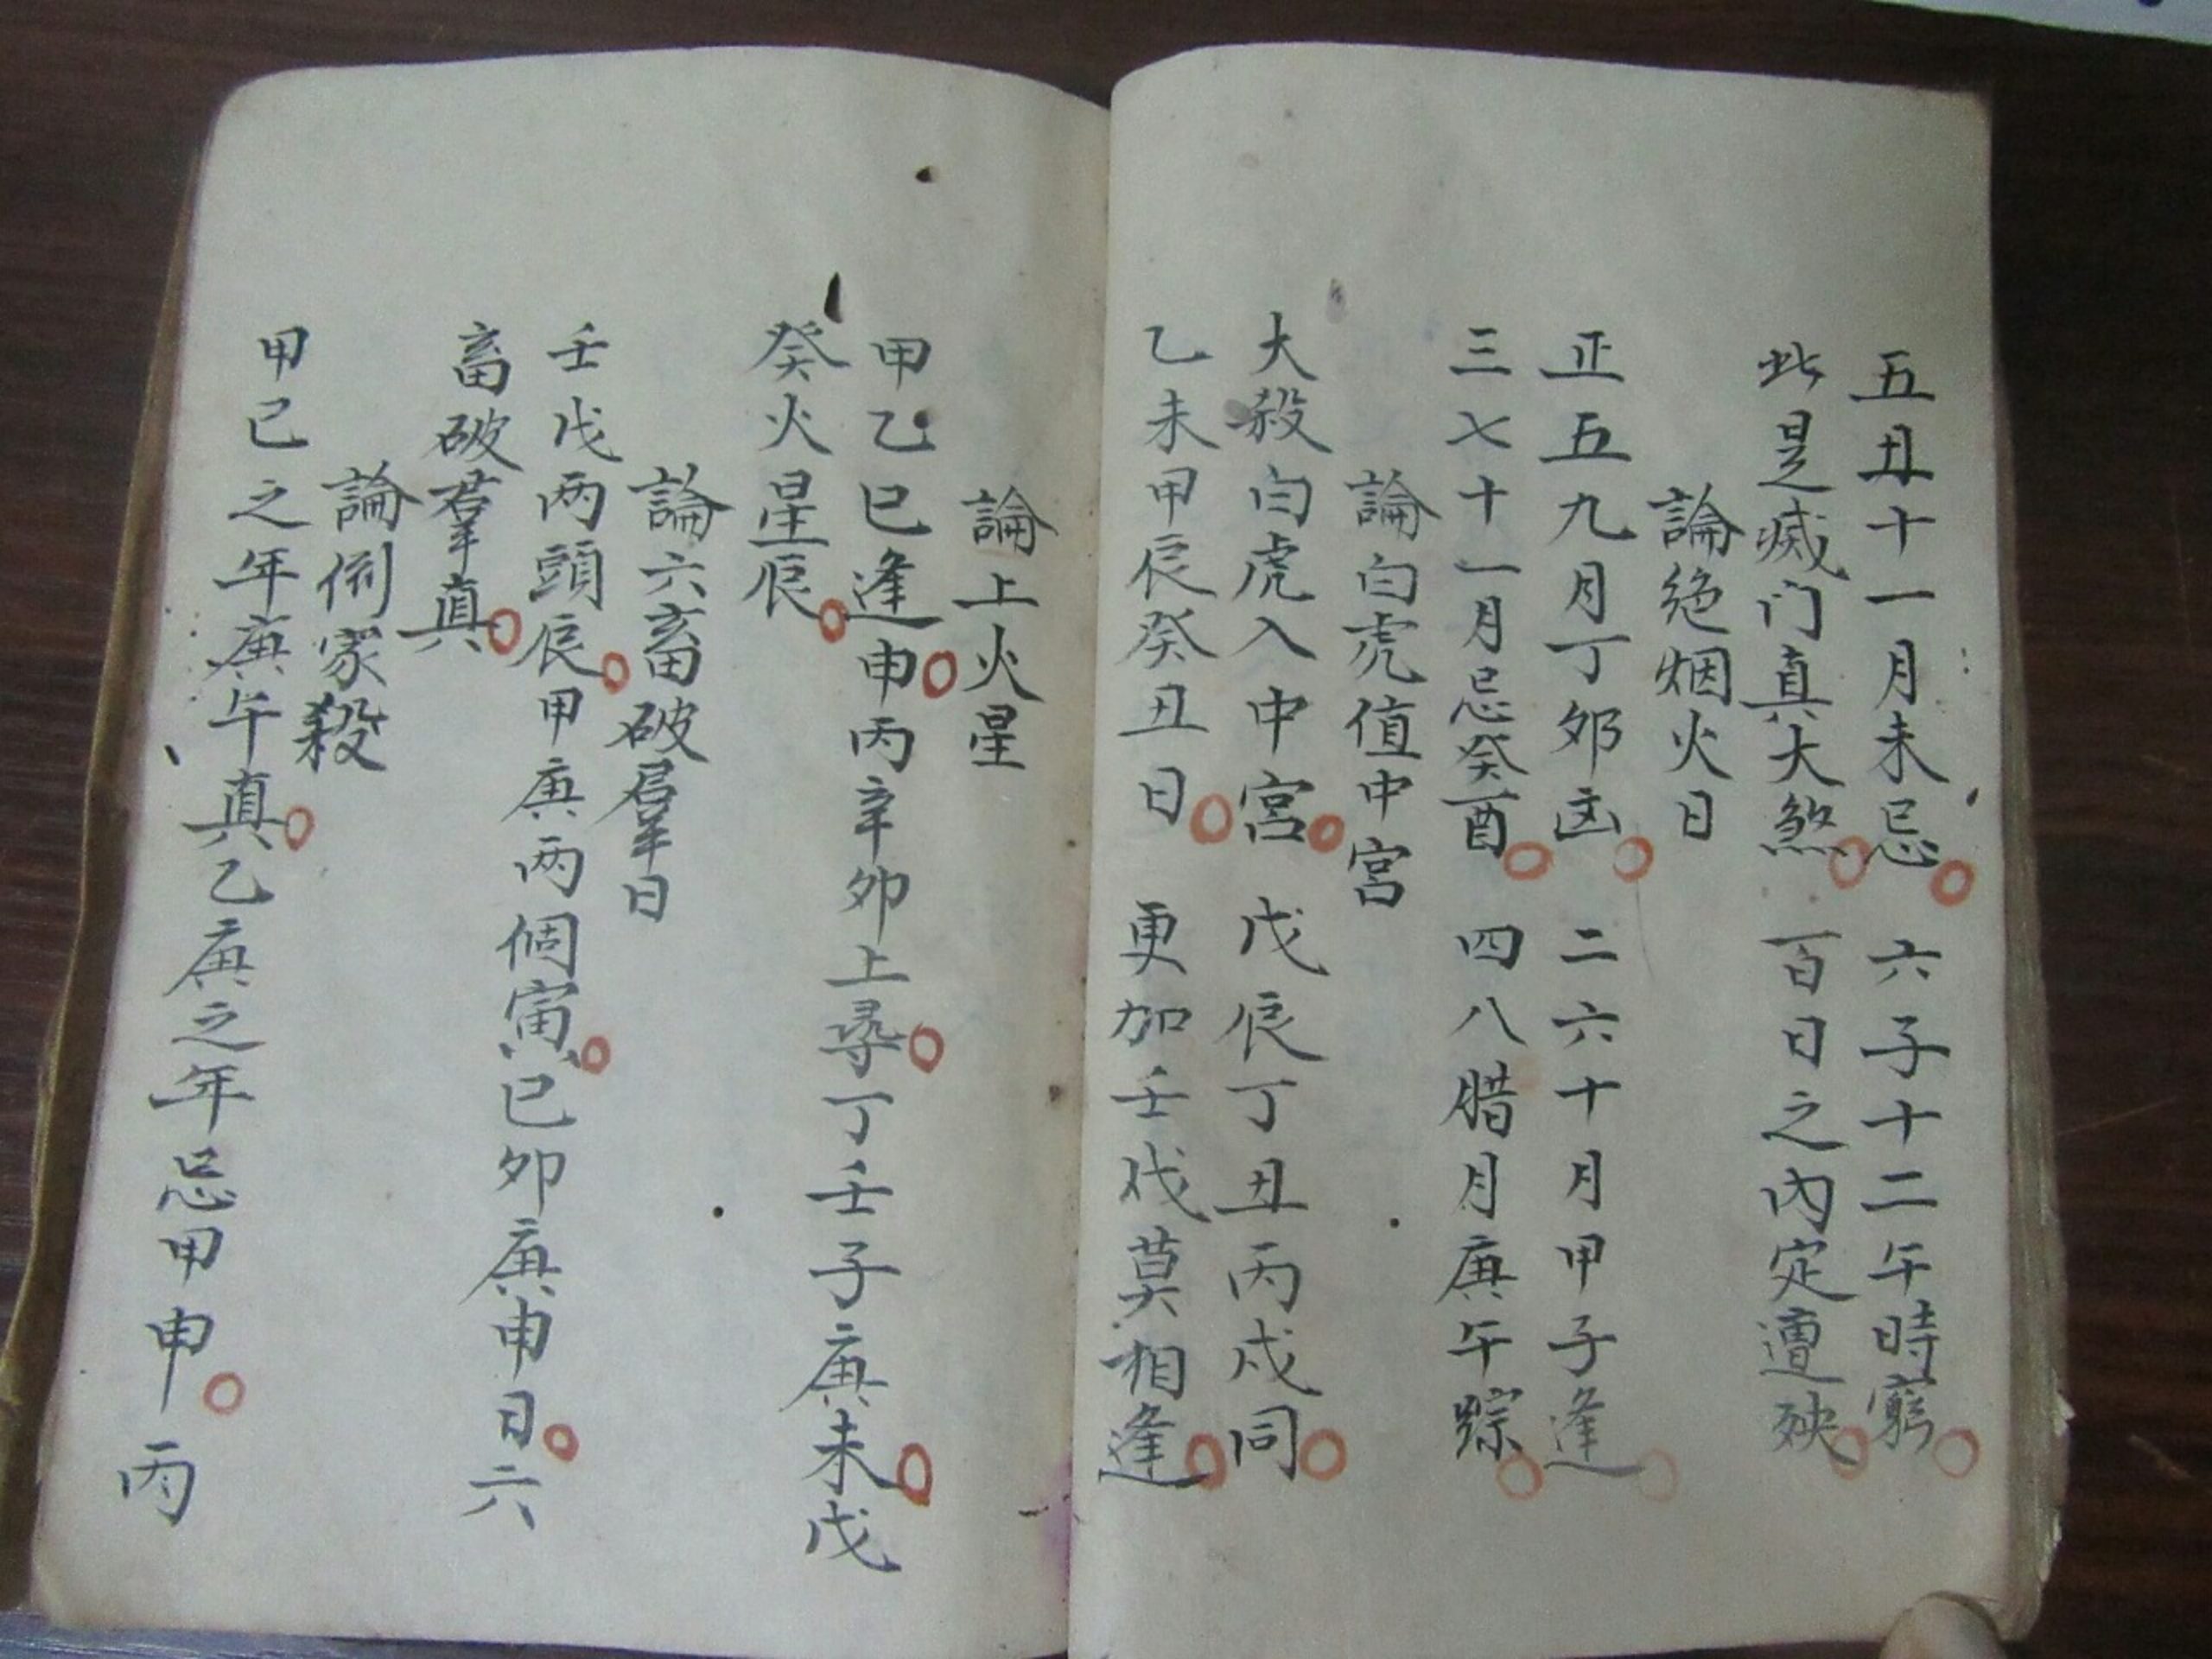 五丑十一月未忌 六子十二午時窮
此是滅门真大煞 百日之內定遭殃
論絶烟火日
正五九月丁卯凶 二六十月甲子逢
三七十一月忌癸酉 四八腊月庚午踪
論白虎值中宮
大殺白虎入中宮 戊辰丁丑丙戌同
乙未甲辰癸丑日 更加壬戌莫相逢
論上火星
甲乙巳逢申丙辛卯上尋丁壬子庚未戊
癸火星辰
論六畜破羣日
壬戊两頭辰甲庚两個寅巳卯庚申日六
畜破羣真
論倒家殺
甲已之年庚午真乙庚之年忌甲申 丙